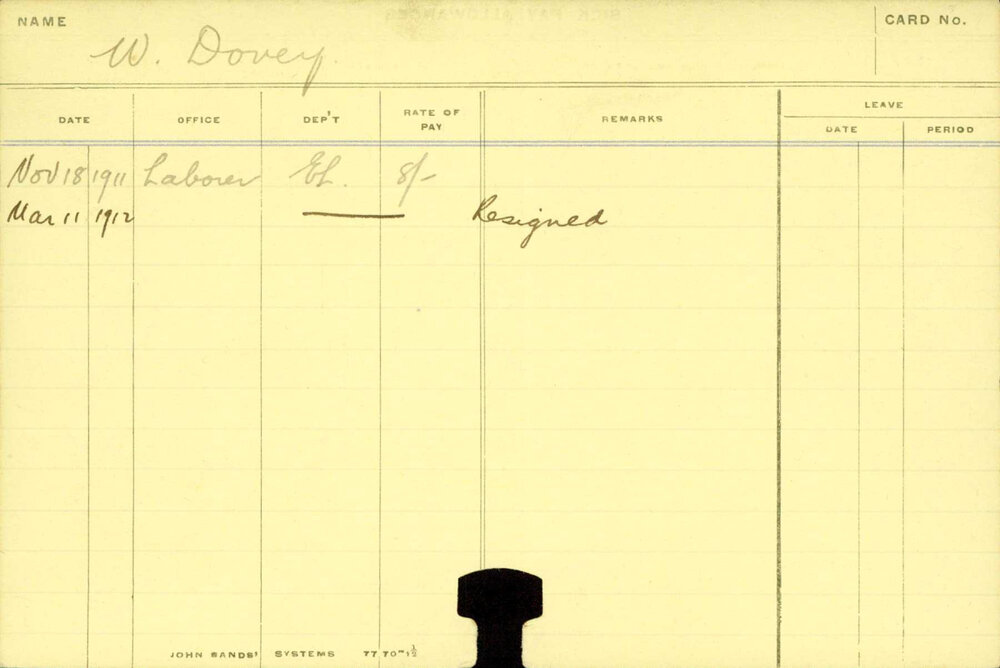 NAME
CARD No.
W. Dovey.
DATE OFFICE DEP'T RATE OF PAY REMARKS LEAVE
DATE PERIOD
Nov 18 1911 Laborer EL. 8/-
Mar 11 1912 Resigned
JOHN SANDS' SYSTEMS 77 70"-1½